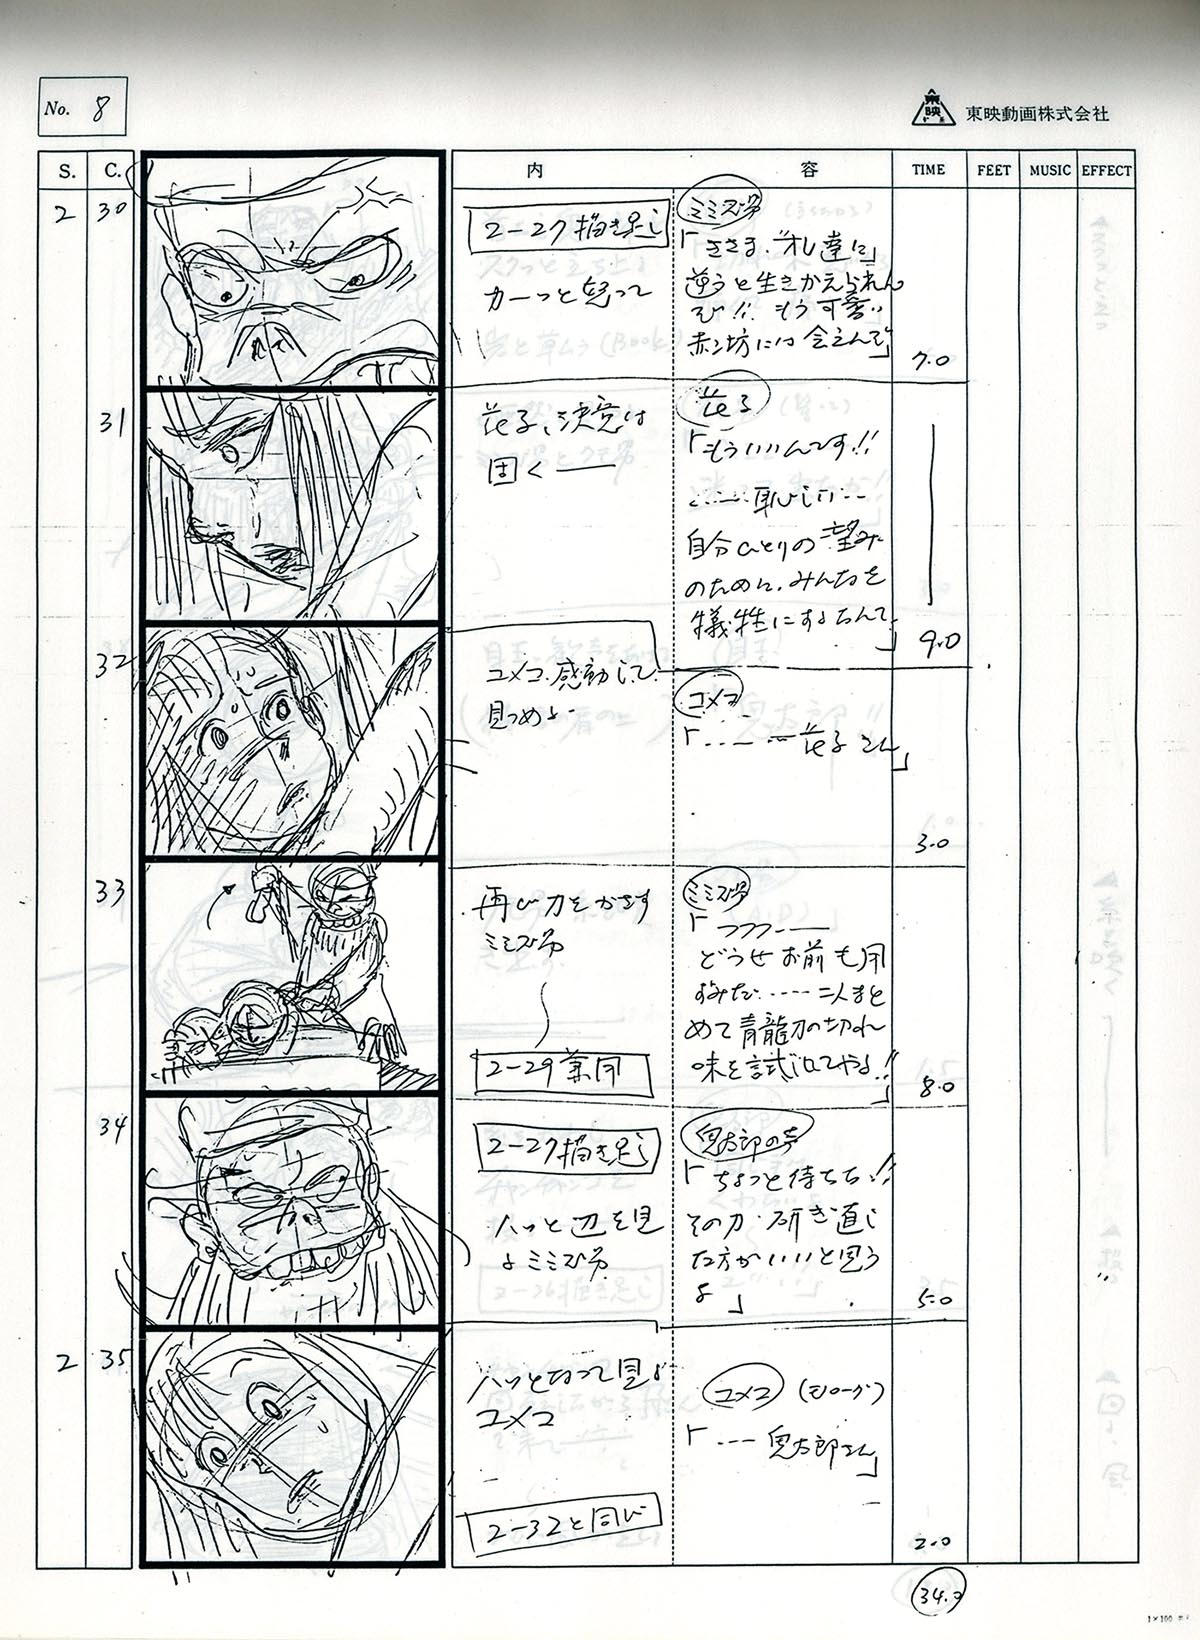 No. 8
東映動画株式会社
S. C. 内容 TIME FEET MUSIC EFFECT
2 30
2-27描き足し
カーッと怒って
ミミズ男
「きさま、オレ達に
逆うと生きかえられん
ぞ!! もう可愛い
赤ン坊には会えんぞ」
7.0
31
花子、決意は
固く――
花子
「もういいんです!!
……恥しい…
自分ひとりの望み
のために、みんなを
犠牲にするなんて」
9.0
32
ユメコ、感動して
見つめる
ユメコ
「……花子さん」
3.0
33
再び刀をかざす
ミミズ男
2-29兼用
ミミズ男
「フフフ――
どうせお前も用
ずみだ……二人まと
めて青龍刀の切れ
味を試してやる!!」
8.0
34
2-27描き足し
ハッと辺を見
るミミズ男
鬼太郎の声
「ちょっと待ちな!!
その刀、研ぎ直し
た方がいいと思う
よ」
5.0
2 35
ハッとなって見る
ユメコ
2-32と同じ
ユメコ (モノローグ)
「…鬼太郎さん」
2.0
34.0